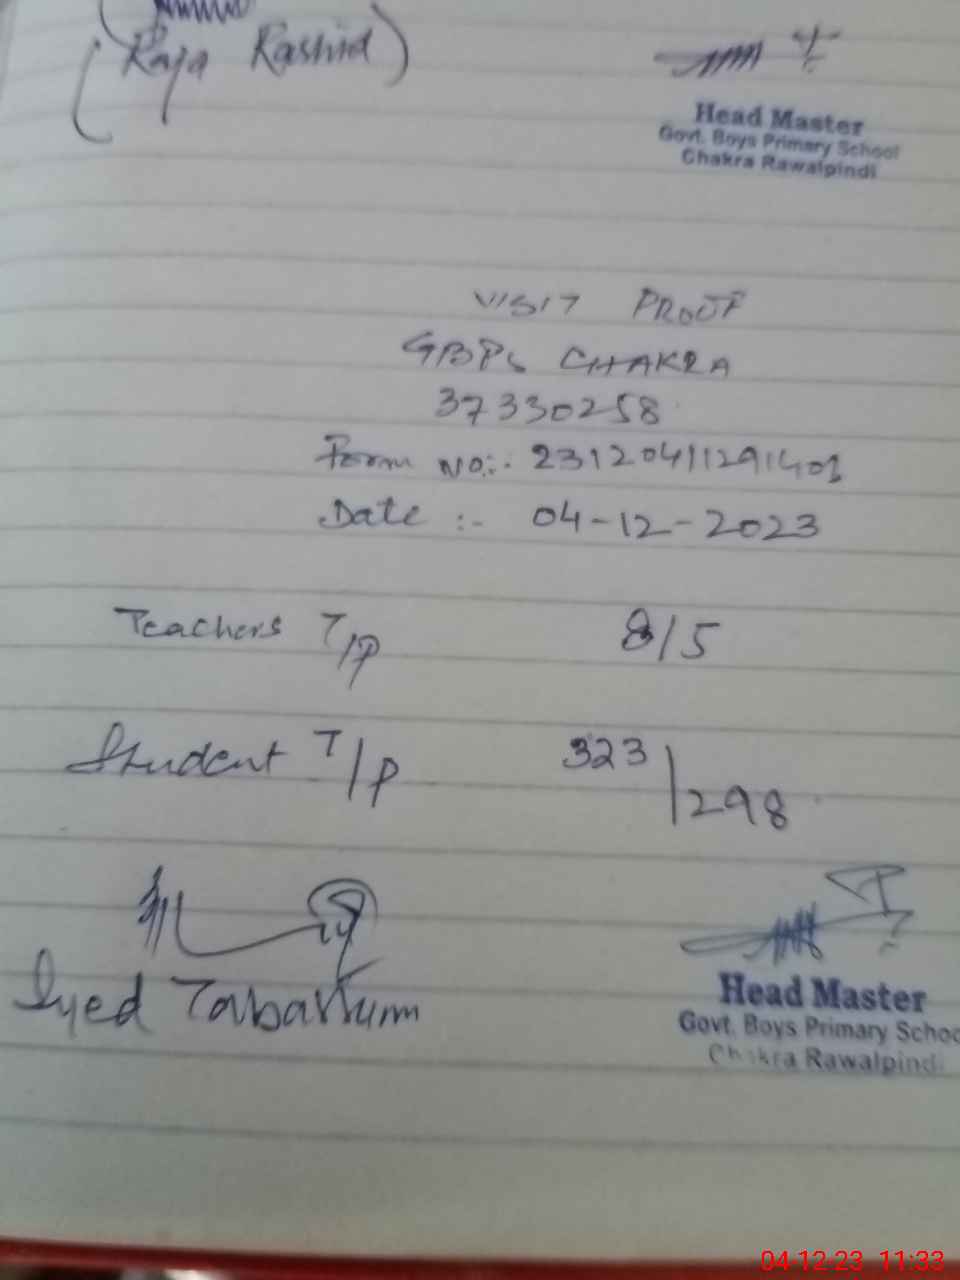 (Raja Rashid)
Head Master
Govt. Boys Primary School
Chakra Rawalpindi
VISIT PROOF
GBPS CHAKRA
37330258
Form No:- 23120411291401
Date :- 04-12-2023
Teachers T/P 8/5
Student T/P 323/298
Syed Tabassum
Head Master
Govt. Boys Primary Schoo
Chakra Rawalpindi
04-12-23 11:33